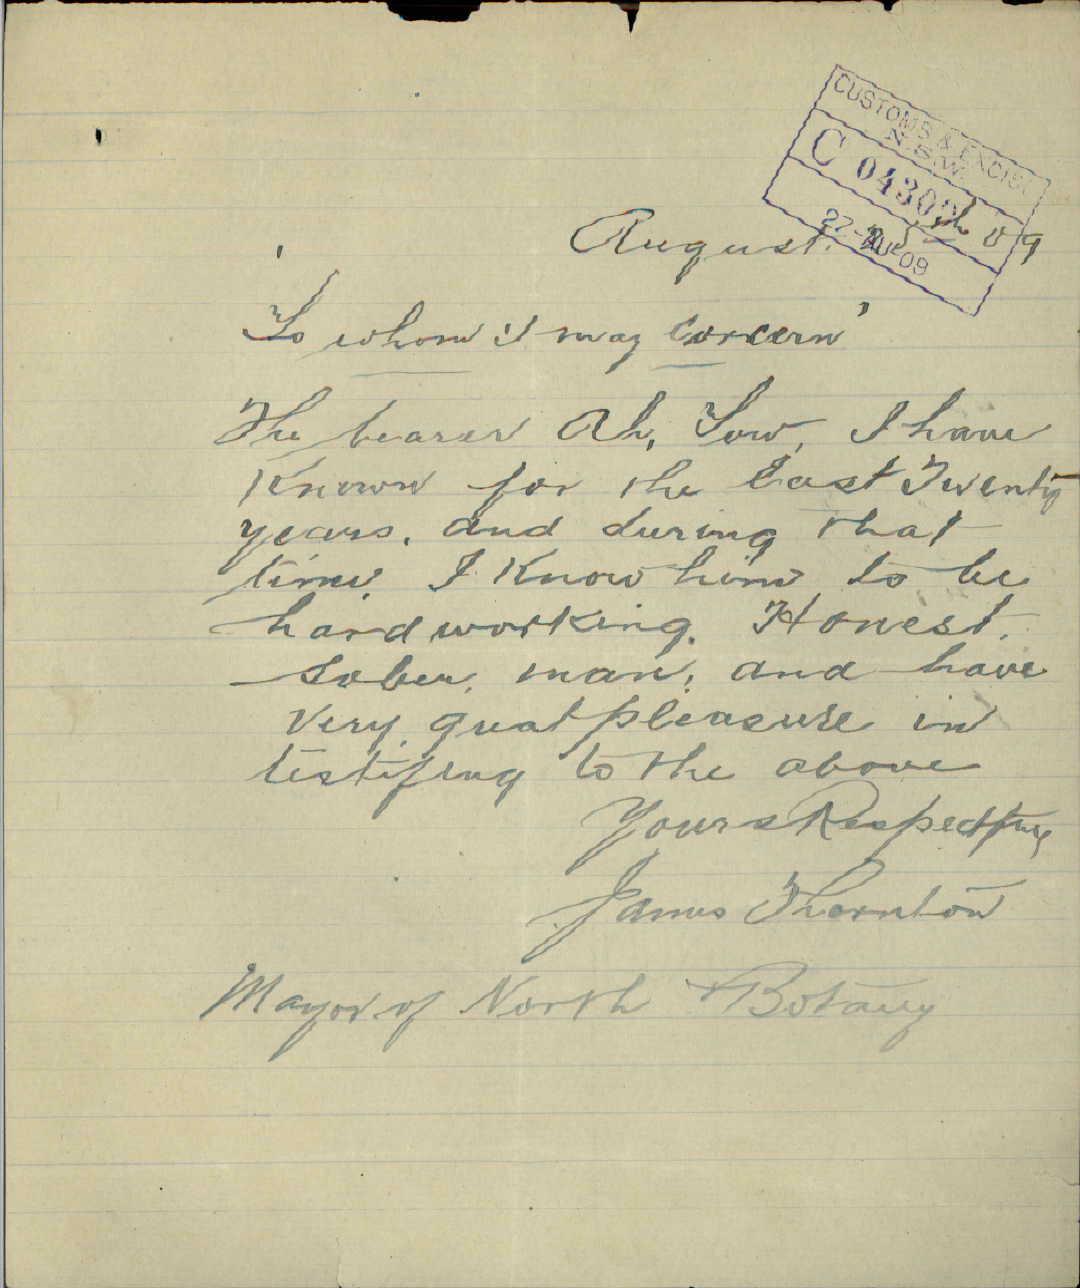 CUSTOMS & EXCISE
N.S.W.
C 0430
27 AU 09
August. 09
"To whom it may Concern"
The bearer Ah, Yow, I have
Known for the Last Twenty
years, and during that
time, I Know him to be
hard working. Honest.
sober, man, and have
Very great pleasure in
testifing to the above
Yours Respectfully
James Thornton
Mayor of North Botany